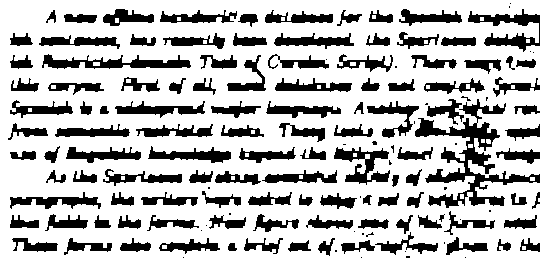 A new offline handwritten database for the Spanish language
ish sentences, has recently been developed: the Spartacus
ish Restricted-domain Task of Cursive Script). There were two
this corpus. First of all, most databases do not contain Spani
Spanish is a widespread major language. Another important
from semantic restricted tasks. These tasks are commonly used
use of linguistic knowledge beyond the lexicon level in the
As the Spartacus database consisted mainly of short sentence
paragraphs, the writers were asked to copy a set of sentences in f
line fields in the forms. Next figure shows one of the forms used
These forms also contain a brief set of instructions given to the